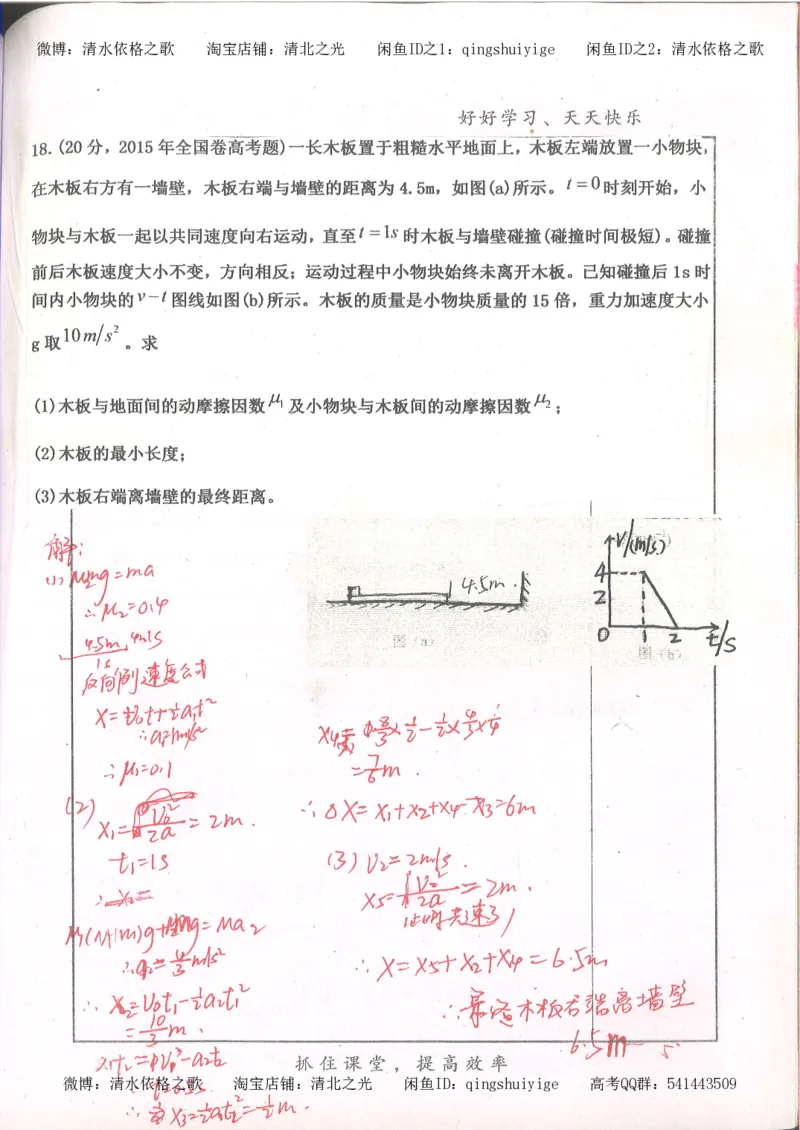 微博：清水依格之歌 淘宝店铺：清北之光 闲鱼ID之1：qingshuiyige 闲鱼ID之2：清水依格之歌
好好学习、天天快乐
18.(20分，2015年全国卷高考题)一长木板置于粗糙水平地面上，木板左端放置一小物块，
在木板右方有一墙壁，木板右端与墙壁的距离为 4.5m，如图(a)所示。t=0时刻开始，小
物块与木板一起以共同速度向右运动，直至t=1s时木板与墙壁碰撞(碰撞时间极短)。碰撞
前后木板速度大小不变，方向相反；运动过程中小物块始终未离开木板。已知碰撞后 1s 时
间内小物块的v-t图线如图(b)所示。木板的质量是小物块质量的 15 倍，重力加速度大小
g取10m/s²。求
(1)木板与地面间的动摩擦因数μ₁及小物块与木板间的动摩擦因数μ₂；
(2)木板的最小长度；
(3)木板右端离墙壁的最终距离。
4.5m.
图(a)
V/(m/s)
4
2
0 1 2 t/s
图(b)
解：
(1) μ₂mg=ma
∴μ₂=0.4
4.5m, 4m/s
1s
x=v₀t+½a₁t²
∴μ₁=0.1
(2)
x₁=V₀²/2a=2m.
t₁=1s
μ₁(M+m)g+μ₂mg=Ma₂
∴a₂=4/3m/s²
∴x₂=V₀t₁-½a₂t₁²
=10/3m.
∴x₃=½at₂²=½m.
=7/6m.
∴ΔX=x₁+x₂+x₄-x₃=6m
(3) V₂=2m/s.
x₅=V₂²/2a=2m.
(此时共速了)
∴X=x₅+x₂+x₄=6.5m
木板右端离墙壁
6.5m
抓住课堂，提高效率
微博：清水依格之歌 淘宝店铺：清北之光 闲鱼ID：qingshuiyige 高考QQ群：541443509